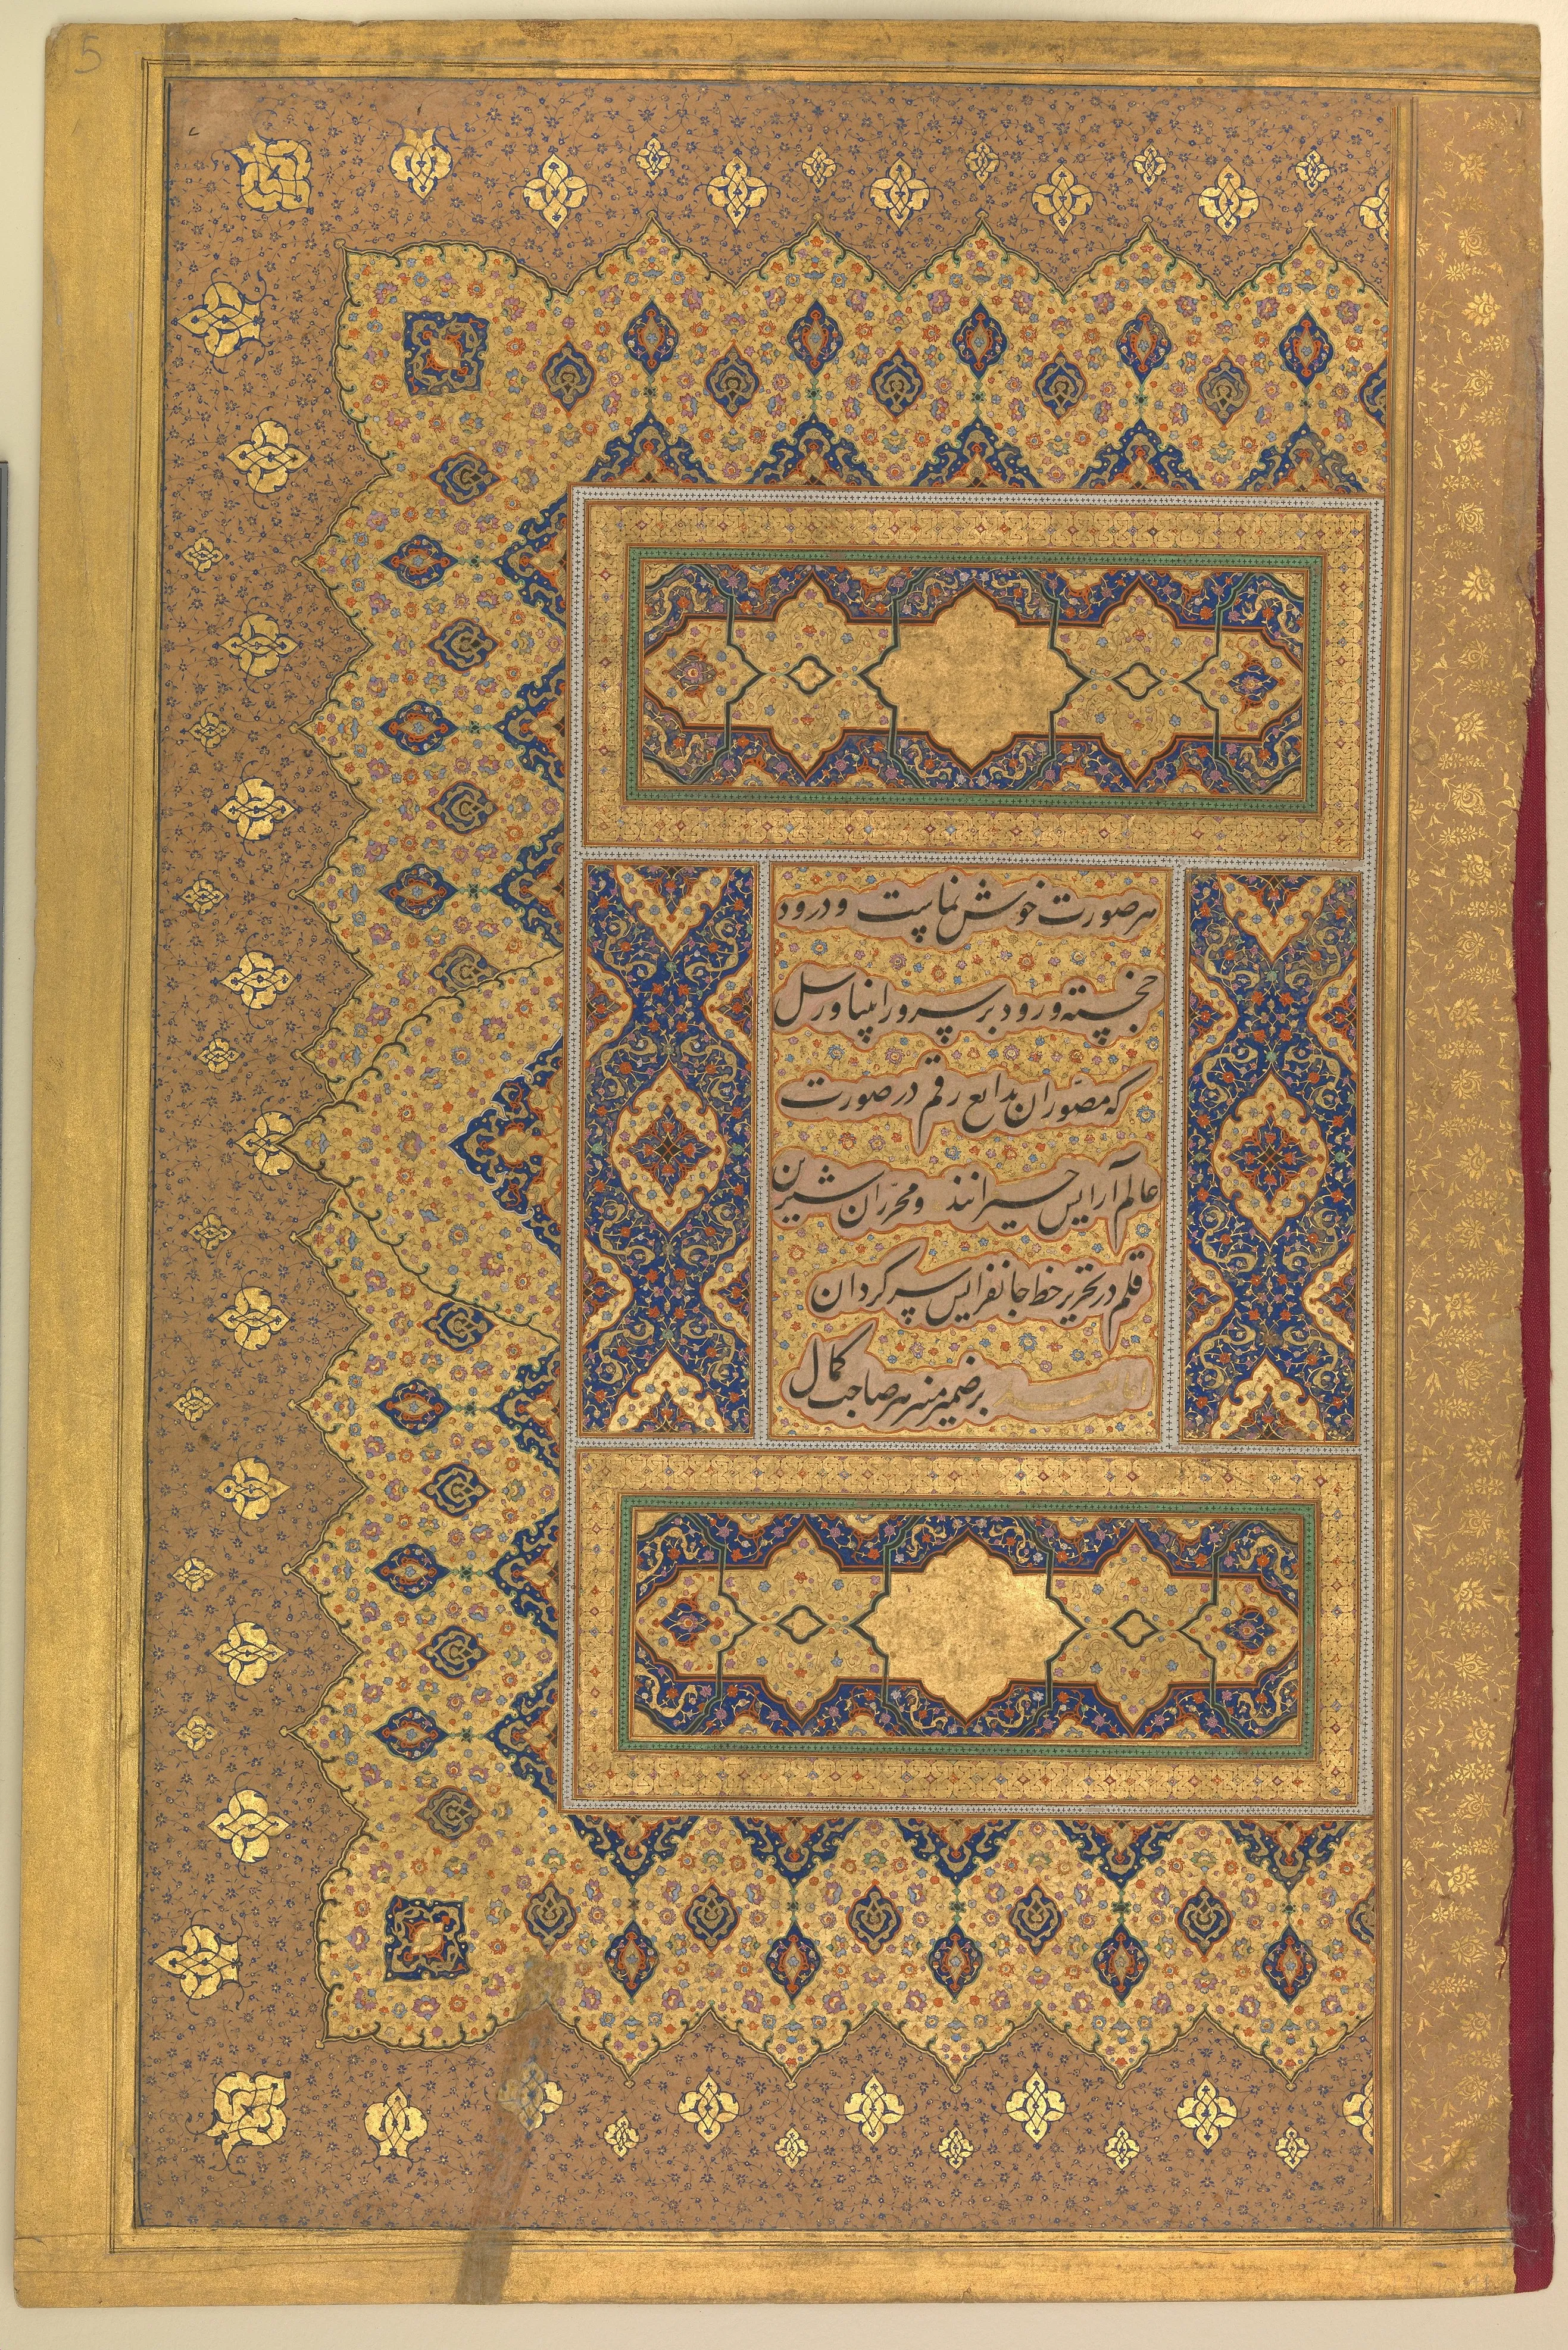 5
هر صورت خوش نماست و درود
خجسته ورود بر سرور انبیا و رسل
که مصوّران بدایع رقم در صورت
عالم آرایش حیرانند و محرّران شیرین
قلم در تحریر خط جانفزایش سرکردان
بر ضمیر منیر هر صاحب کمال